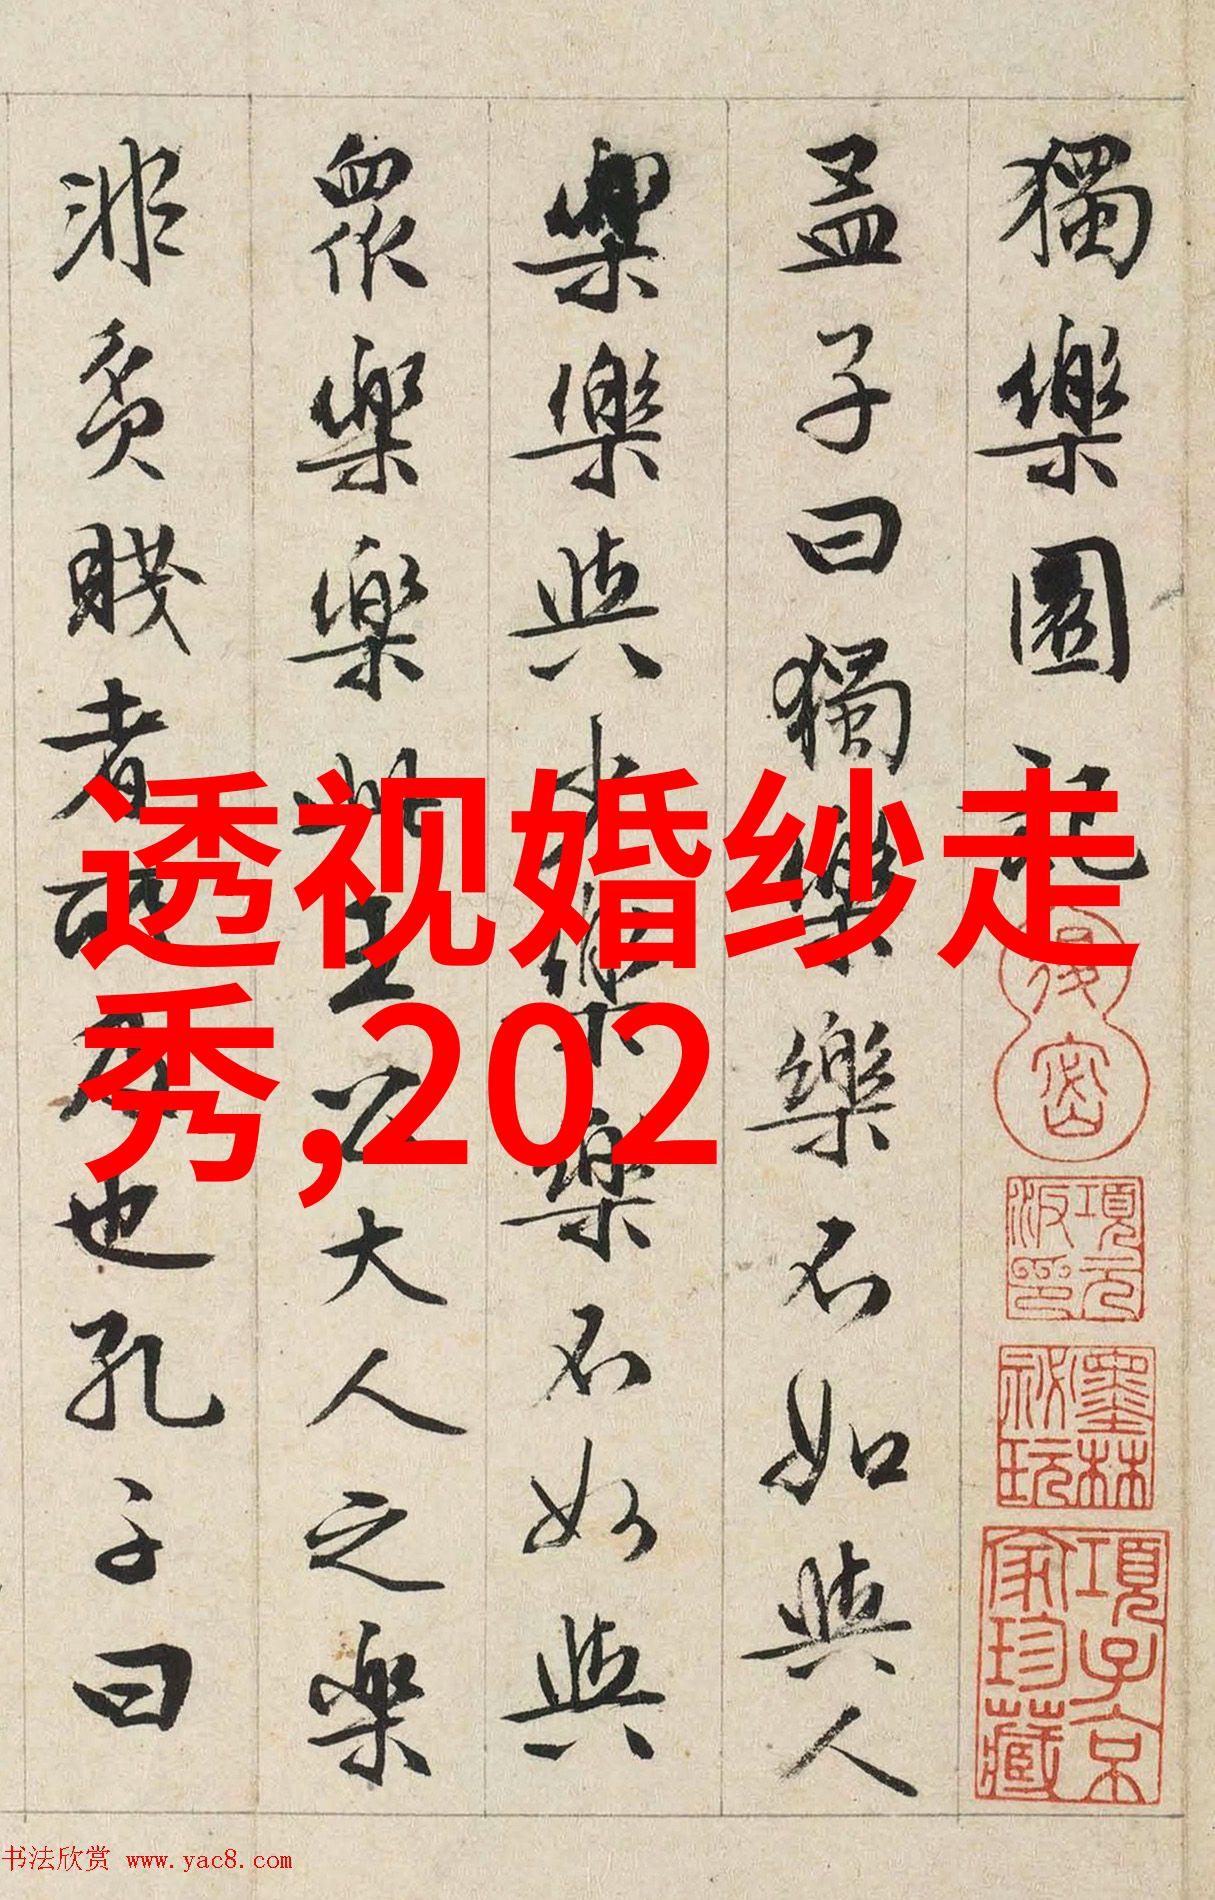 獨樂園記
孟子曰獨樂樂不如與人
樂樂與少樂樂不如與
眾樂樂此王公大人之樂
非貧賤者所及也孔子曰
透视婚纱走
秀,202
退密
項元汴印
墨林祕玩
項子京家珍藏
书法欣赏 www.yac8.com